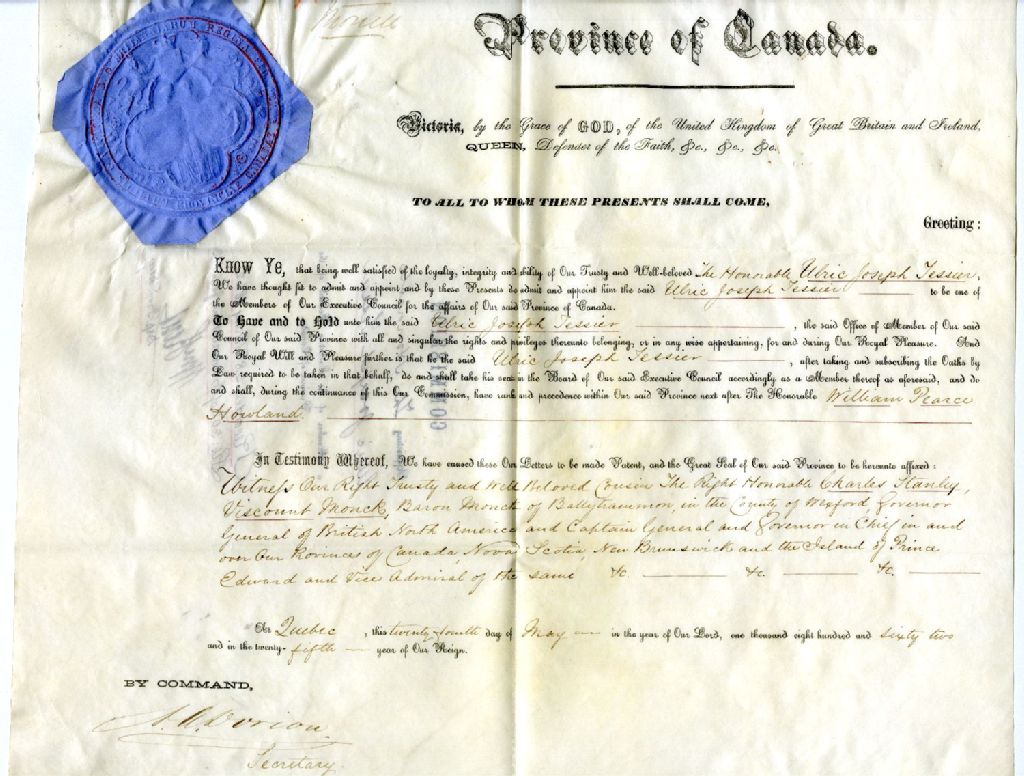 Monck
Province of Canada.
Victoria, by the Grace of GOD, of the United Kingdom of Great Britain and Ireland,
QUEEN, Defender of the Faith, &c., &c., &c.
TO ALL TO WHOM THESE PRESENTS SHALL COME,
Greeting:
Know Ye, that being well satisfied of the loyalty, integrity and ability of Our Trusty and Well-beloved The Honorable Ulric Joseph Tessier,
We have thought fit to admit and appoint and by these Presents do admit and appoint him the said Ulric Joseph Tessier to be one of
the Members of Our Executive Council for the affairs of Our said Province of Canada.
To Have and to Hold unto him the said Ulric Joseph Tessier, the said Office of Member of Our said
Council of Our said Province with all and singular the rights and privileges thereunto belonging, or in any wise appertaining, for and during Our Royal Pleasure. And
Our Royal Will and Pleasure further is that he the said Ulric Joseph Tessier, after taking and subscribing the Oaths by
Law required to be taken in that behalf, do and shall take his seat in the Board of Our said Executive Council accordingly as a Member thereof as aforesaid, and do
and shall, during the continuance of this Our Commission, have rank and precedence within Our said Province next after The Honorable William Pearce
Howland
In Testimony Whereof, We have caused these Our Letters to be made Patent, and the Great Seal of Our said Province to be hereunto affixed:
Witness Our Right Trusty and Well Beloved Cousin The Right Honorable Charles Stanley,
Viscount Monck, Baron Monck of Ballytrammon, in the County of Wexford, Governor
General of British North America and Captain General and Governor in Chief in and
over Our Provinces of Canada, Nova Scotia, New Brunswick and the Island of Prince
Edward and Vice Admiral of the same &c. &c. &c.
At Quebec, this twenty fourth day of May in the year of Our Lord, one thousand eight hundred and sixty two
and in the twenty-fifth year of Our Reign.
BY COMMAND,
A. A. Dorion
Secretary.